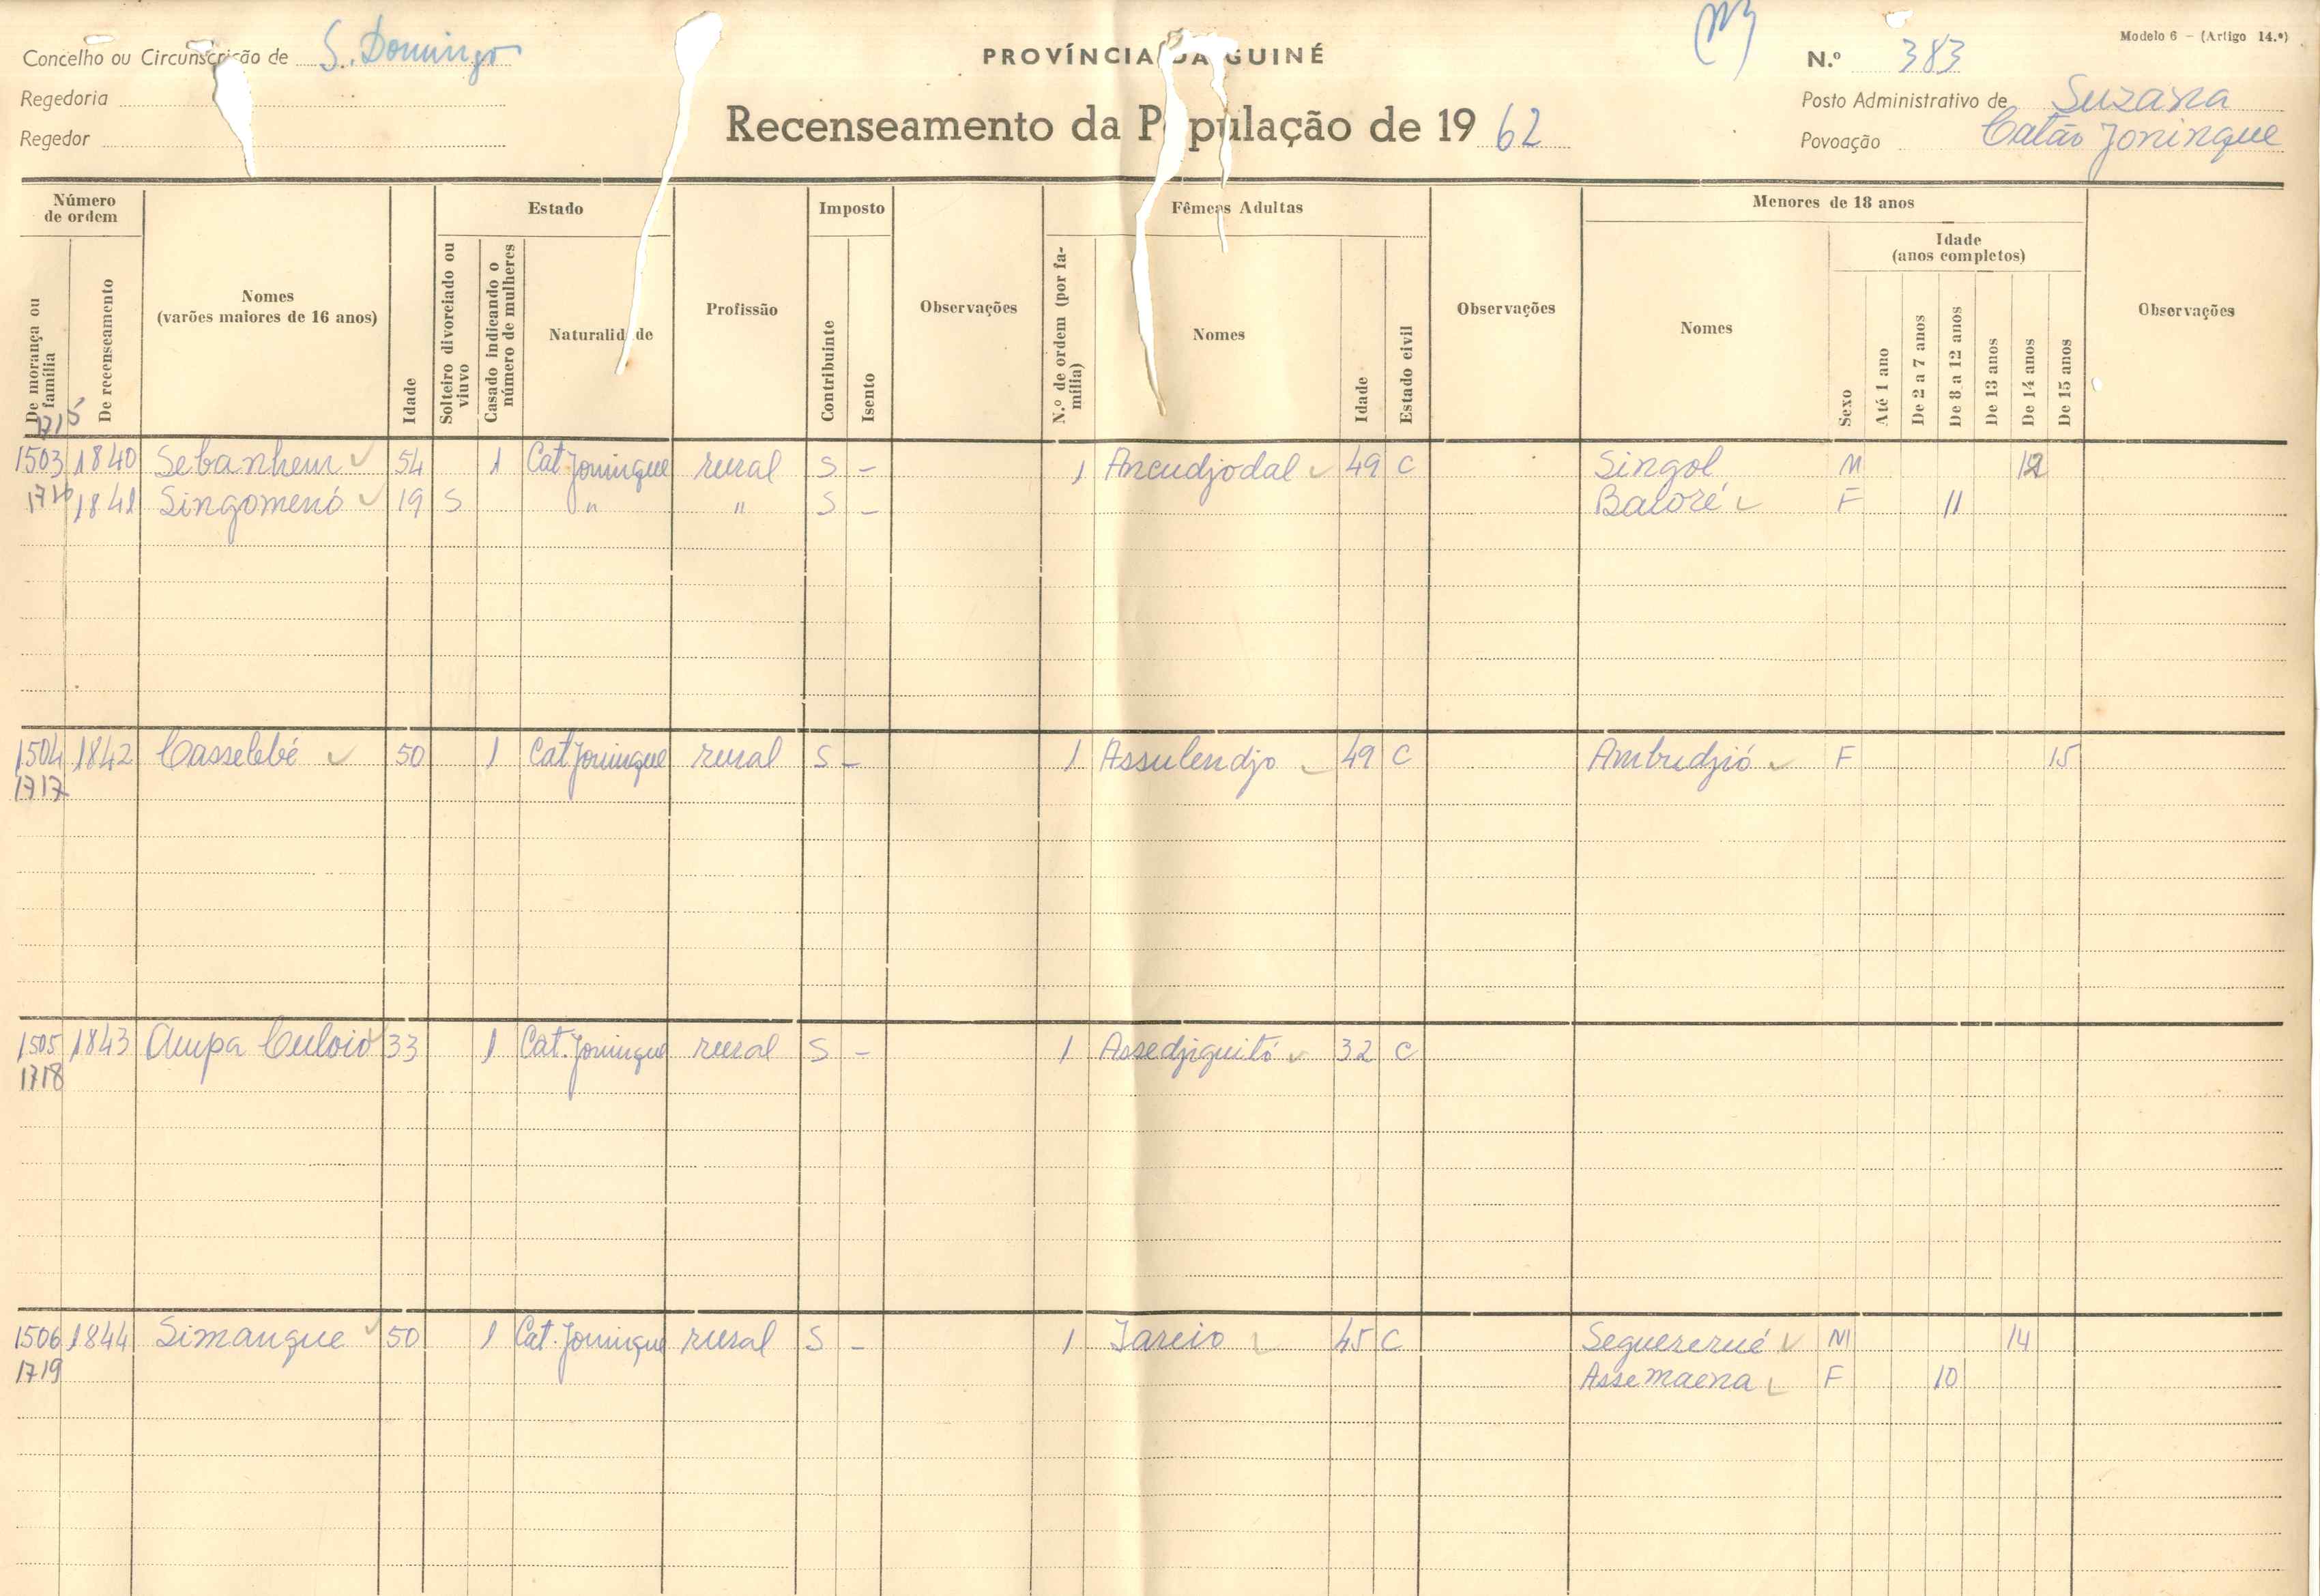 Modelo 6 – (Artigo 14.º)
Concelho ou Circunscrição de S. Domingo
PROVÍNCIA DA GUINÉ
N.º 383
Regedoria
Posto Administrativo de Suzana
Regedor
Recenseamento da População de 1962
Povoação Catão Joninque
Número de ordem
De morança ou família
De recenseamento
Nomes
(varões maiores de 16 anos)
Idade
Estado
Solteiro divorciado ou viuvo
Casado indicando o número de mulheres
Naturalidade
Profissão
Imposto
Contribuinte
Isento
Observações
Fêmeas Adultas
N.º de ordem (por família)
Nomes
Idade
Estado civil
Observações
Menores de 18 anos
Nomes
Sexo
Idade
(anos completos)
Até 1 ano
De 2 a 7 anos
De 8 a 12 anos
De 13 anos
De 14 anos
De 15 anos
Observações
1715
1503 1840 Sebanhem 54 1 Cat Joninque rural S – 1 Ancudjodal 49 C Singol M 12
1716 1841 Singomenó 19 S " " S – Baloré F 11
1504 1842 Casselebé 50 1 Cat Joninque rural S – 1 Assulendjo 49 C Ambudjió F 15
1717
1505 1843 Ampa Culoio 33 1 Cat. Joninque rural S – 1 Assedjiguitó 32 C
1718
1506 1844 Simanque 50 1 Cat. Joninque rural S – 1 Jareio 45 C Seguererué M 14
1719 Assemaena F 10